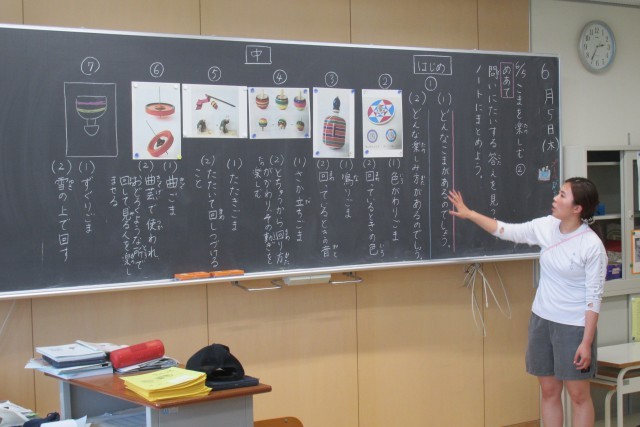 6月5日(木)
6/5 こまを楽しむ②
めあて
問いにたいする答えを見つ
ノートにまとめよう。
はじめ
①
(1) どんなこまがあるのでしょう。
(2) どんな楽しみ方があるのでしょう。
中
②
(1) 色がわりごま
(2) 回っているときの色
③
(1) 鳴りごま
(2) 回っているときの音
④
(1) さか立ちごま
(2) とちゅうから回り方
がかわり、その動きを
楽しむ
⑤
(1) たたきごま
(2) たたいて回しつづける
こと
⑥
曲ごま
(2) 曲芸で使われ、
おどろくような所で
回して見る人を楽し
ませる
⑦
(1) ずぐりごま
(2) 雪の上で回す